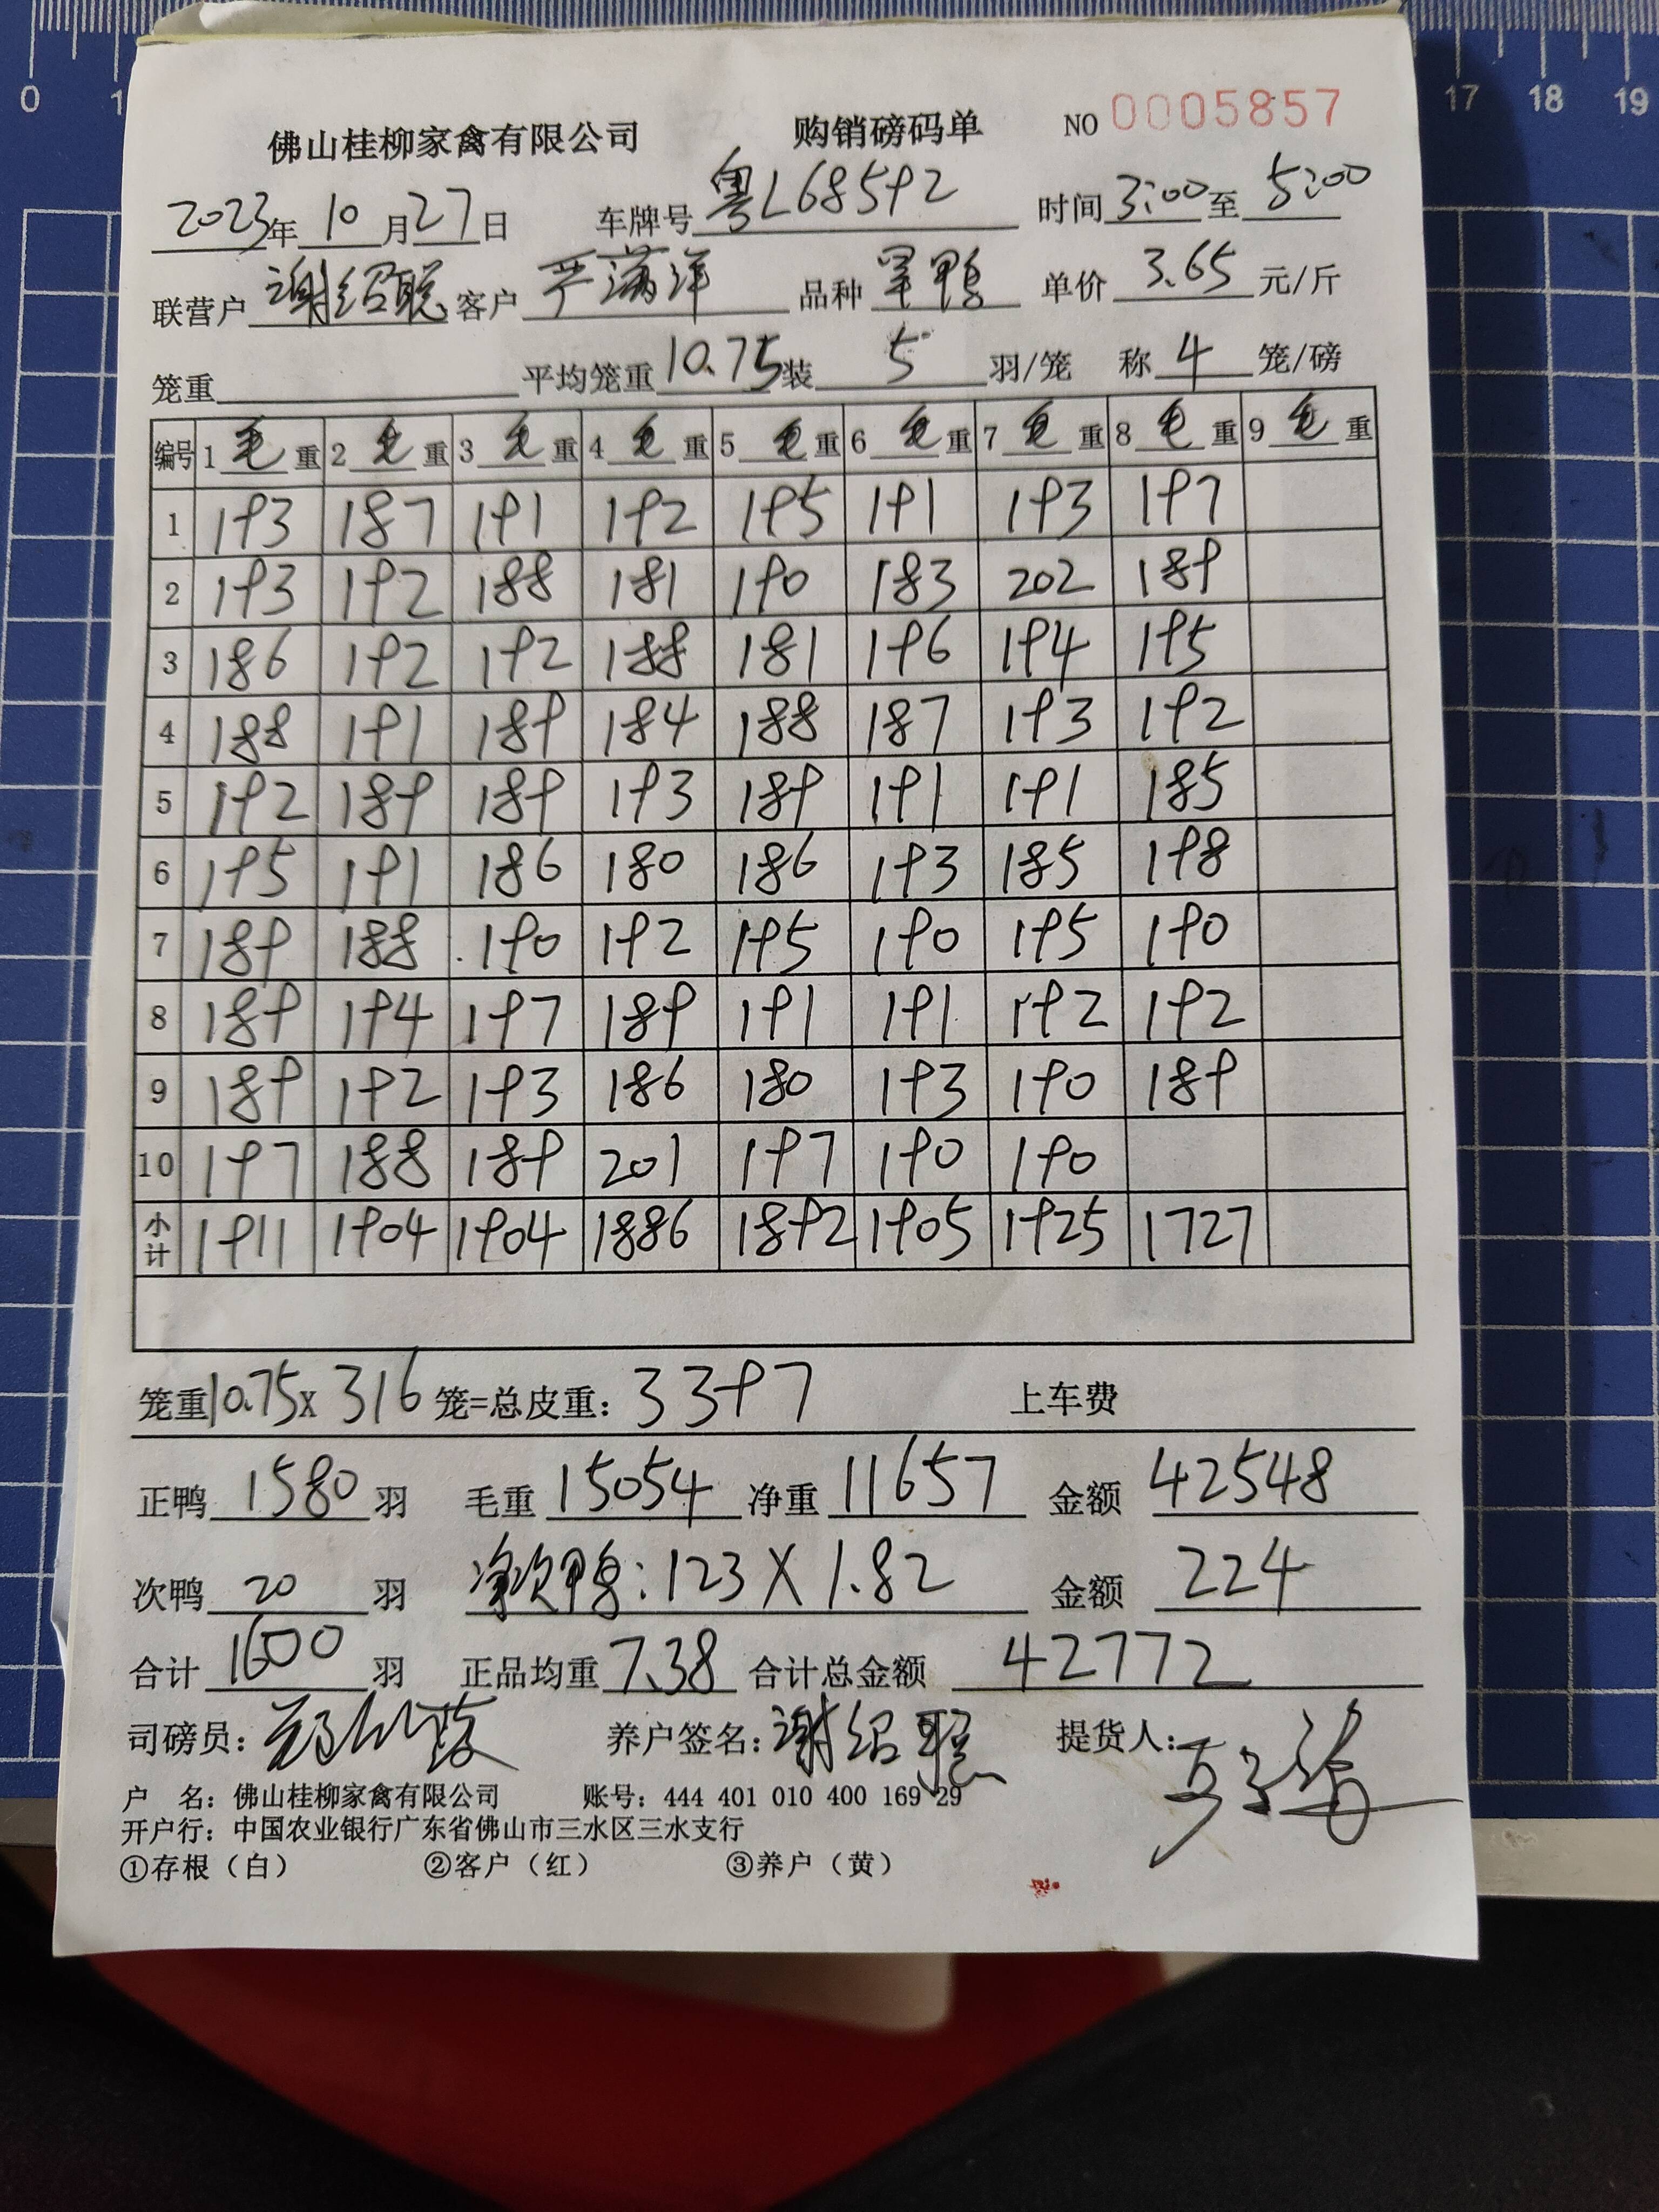 0 1 17 18 19
佛山桂柳家禽有限公司 购销磅码单 NO 0005857
2023年 10 月 27 日 车牌号 粤L68592 时间 3:00 至 5:00
联营户 谢绍聪 客户 严满洋 品种 单鸭 单价 3.65 元/斤
笼重 平均笼重 10.75 装 5 羽/笼 称 4 笼/磅
编号 1 毛 重 2 毛 重 3 毛 重 4 毛 重 5 毛 重 6 毛 重 7 毛 重 8 毛 重 9 毛 重
1 193 187 191 192 195 191 193 197
2 193 192 188 181 190 183 202 189
3 186 192 192 188 181 196 194 195
4 188 191 189 184 188 187 193 192
5 192 189 189 193 189 191 191 185
6 195 191 186 180 186 193 185 198
7 189 188 190 192 195 190 195 190
8 189 194 197 189 191 191 192 192
9 189 192 193 186 180 193 190 189
10 197 188 189 201 197 190 190
小计 1911 1904 1904 1886 1892 1905 1925 1727
笼重 10.75 x 316 笼=总皮重: 3397 上车费
正鸭 1580 羽 毛重 15054 净重 11657 金额 42548
次鸭 20 羽 净次鸭: 123 X 1.82 金额 224
合计 1600 羽 正品均重 7.38 合计总金额 42772
司磅员: 养户签名: 谢绍聪 提货人:
户 名: 佛山桂柳家禽有限公司 账号: 444 401 010 400 169 29
开户行: 中国农业银行广东省佛山市三水区三水支行
①存根（白） ②客户（红） ③养户（黄）